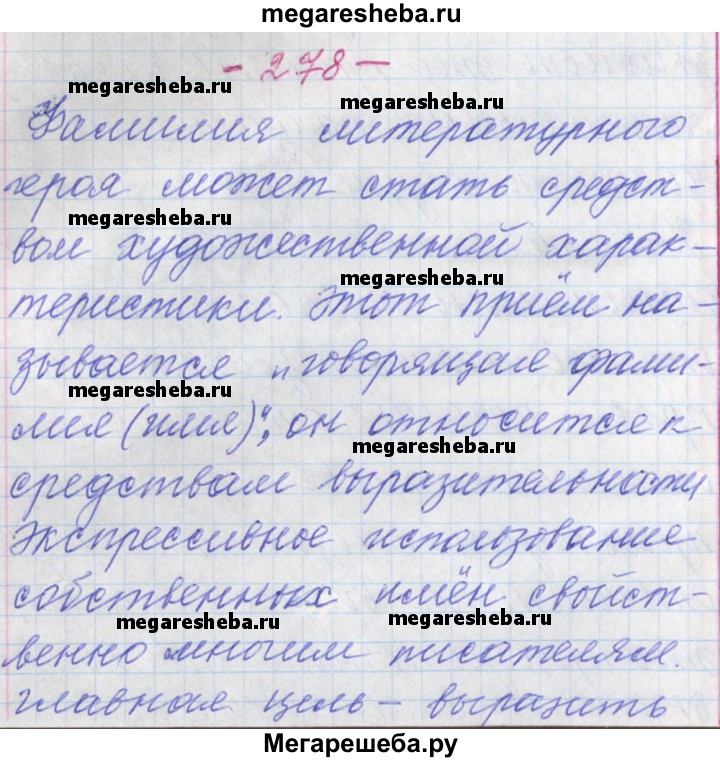 megaresheba.ru
- 278 -
megaresheba.ru
megaresheba.ru
Фамилия литературного
героя может стать средст-
megaresheba.ru
вом художественной харак-
megaresheba.ru
теристики. Этот приём на-
зывается „говорящая фами-
megaresheba.ru
лия (имя)", он относится к
megaresheba.ru
средствам выразительности
Экспрессивное использование
собственных имён свойст-
megaresheba.ru
megaresheba.ru
венно многим писателям.
главная цель - выразить
Мегарешеба.ру